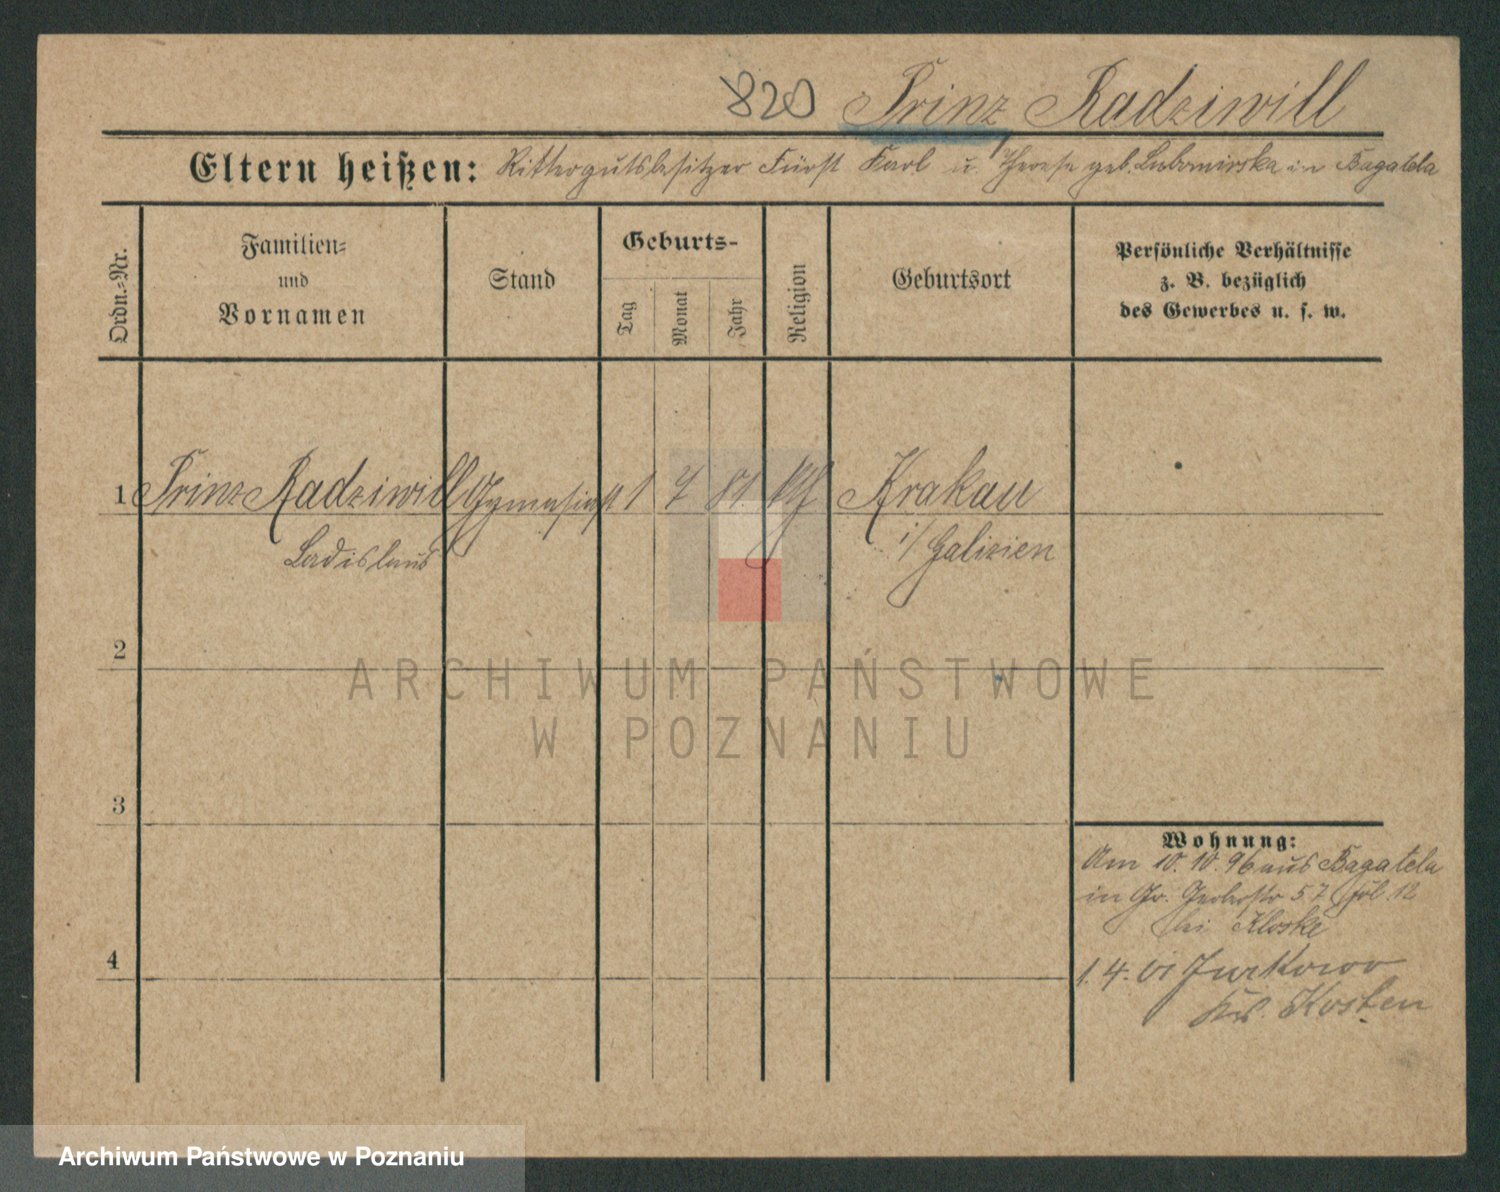 820 Prinz Radziwill
Eltern heißen: Rittergutsbesitzer Fürst Karl u. Therese geb. Lubomirska in Bagatela
Ordn.=Nr.
Familien=
und
Vornamen
Stand
Geburts-
Tag
Monat
Jahr
Religion
Geburtsort
Persönliche Verhältnisse
z. B. bezüglich
des Gewerbes u. s. w.
1 Prinz Radziwill Gymnasiast 1 7 81. kth Krakau
Ladislaus
i/ Galizien
2
3
4
Wohnung:
Am 10. 10. 96 aus Bagatela
in Gr. Gerberstr 57
bei Kloske
1. 4. 01 Jurkowo
Kr. Kosten
ARCHIWUM PAŃSTWOWE
W POZNANIU
Archiwum Państwowe w Poznaniu